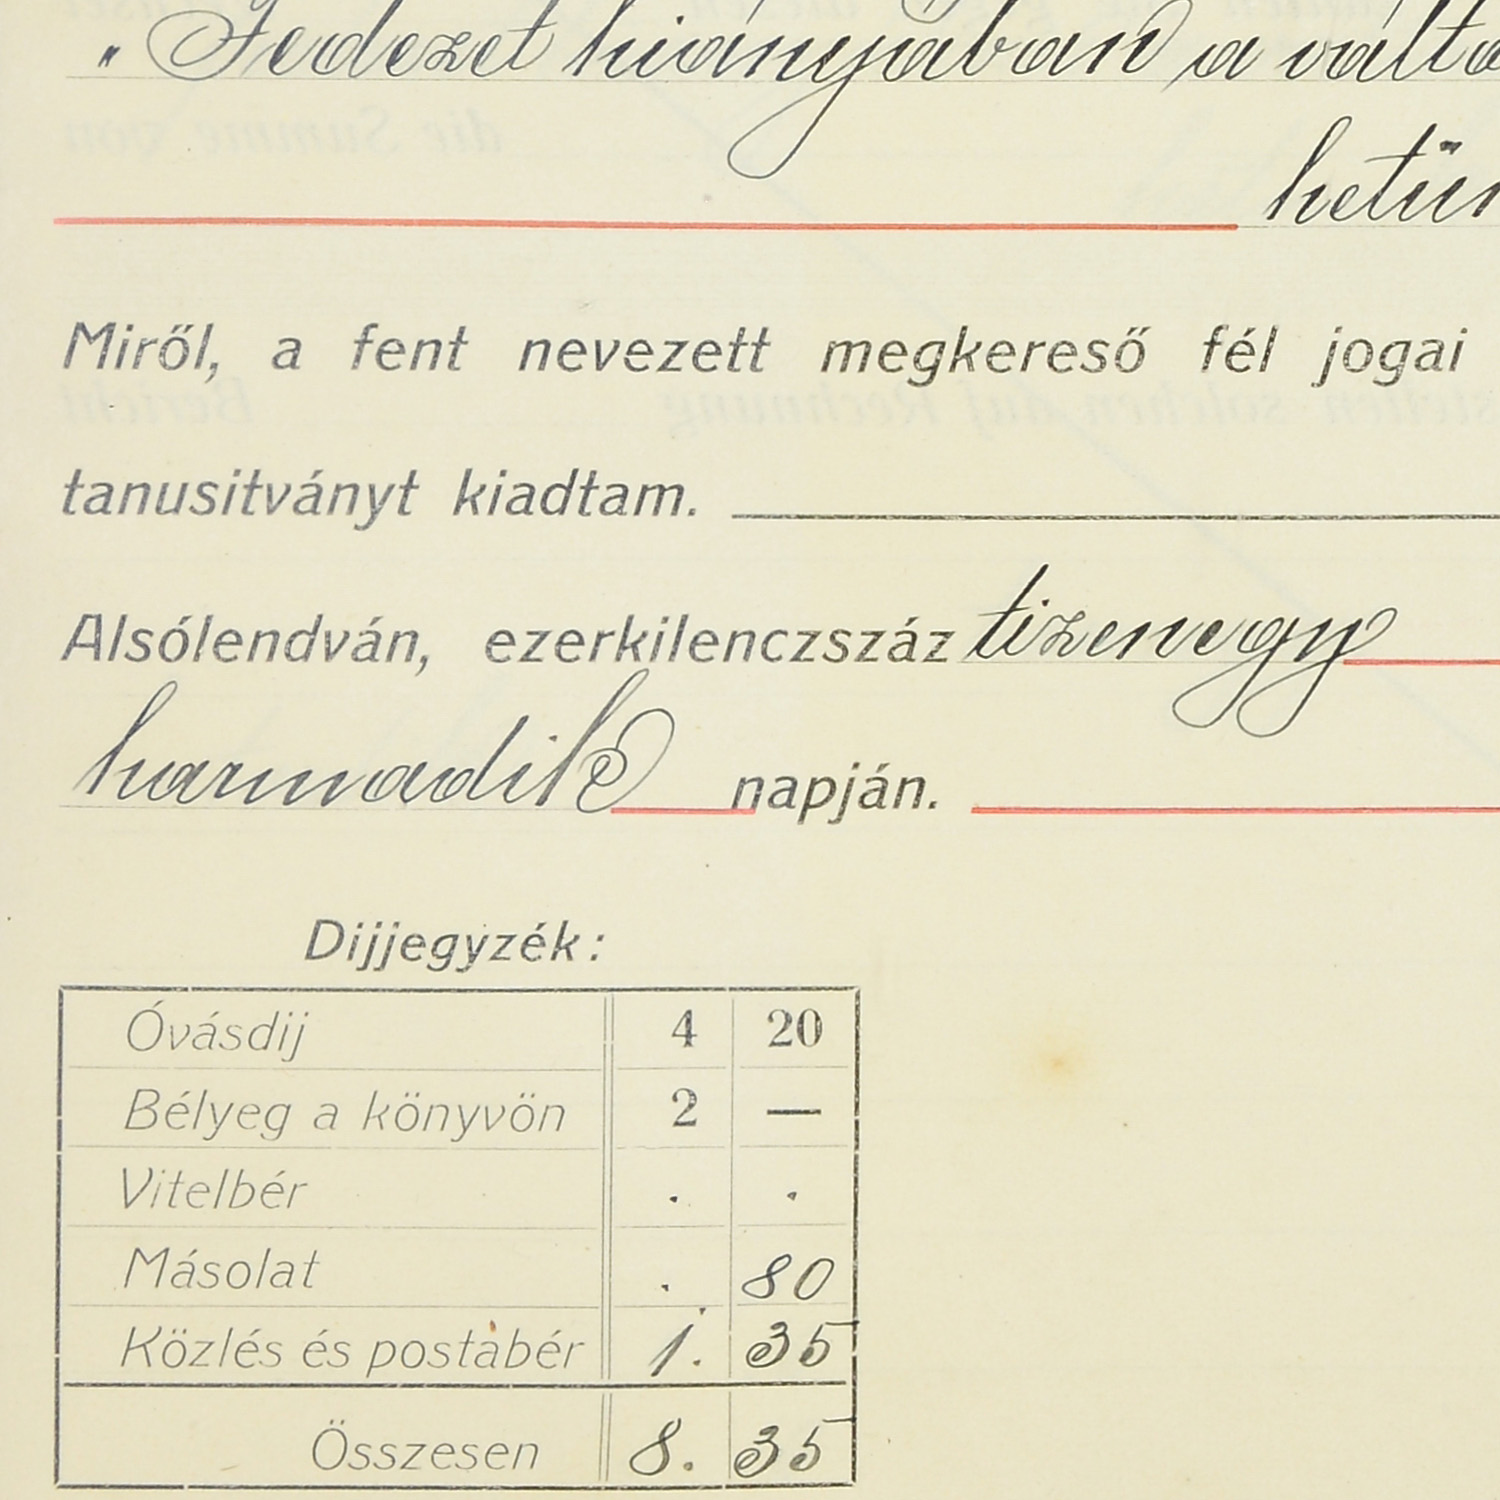 „Fedezet hiányában a válto
hetün
Miről, a fent nevezett megkereső fél jogai
tanusitványt kiadtam.
Alsólendván, ezerkilenczszáz tizenegy
harmadik napján.
Dijjegyzék:
Óvásdij 4 20
Bélyeg a könyvön 2 —
Vitelbér . .
Másolat . 80
Közlés és postabér 1. 35
Összesen 8. 35